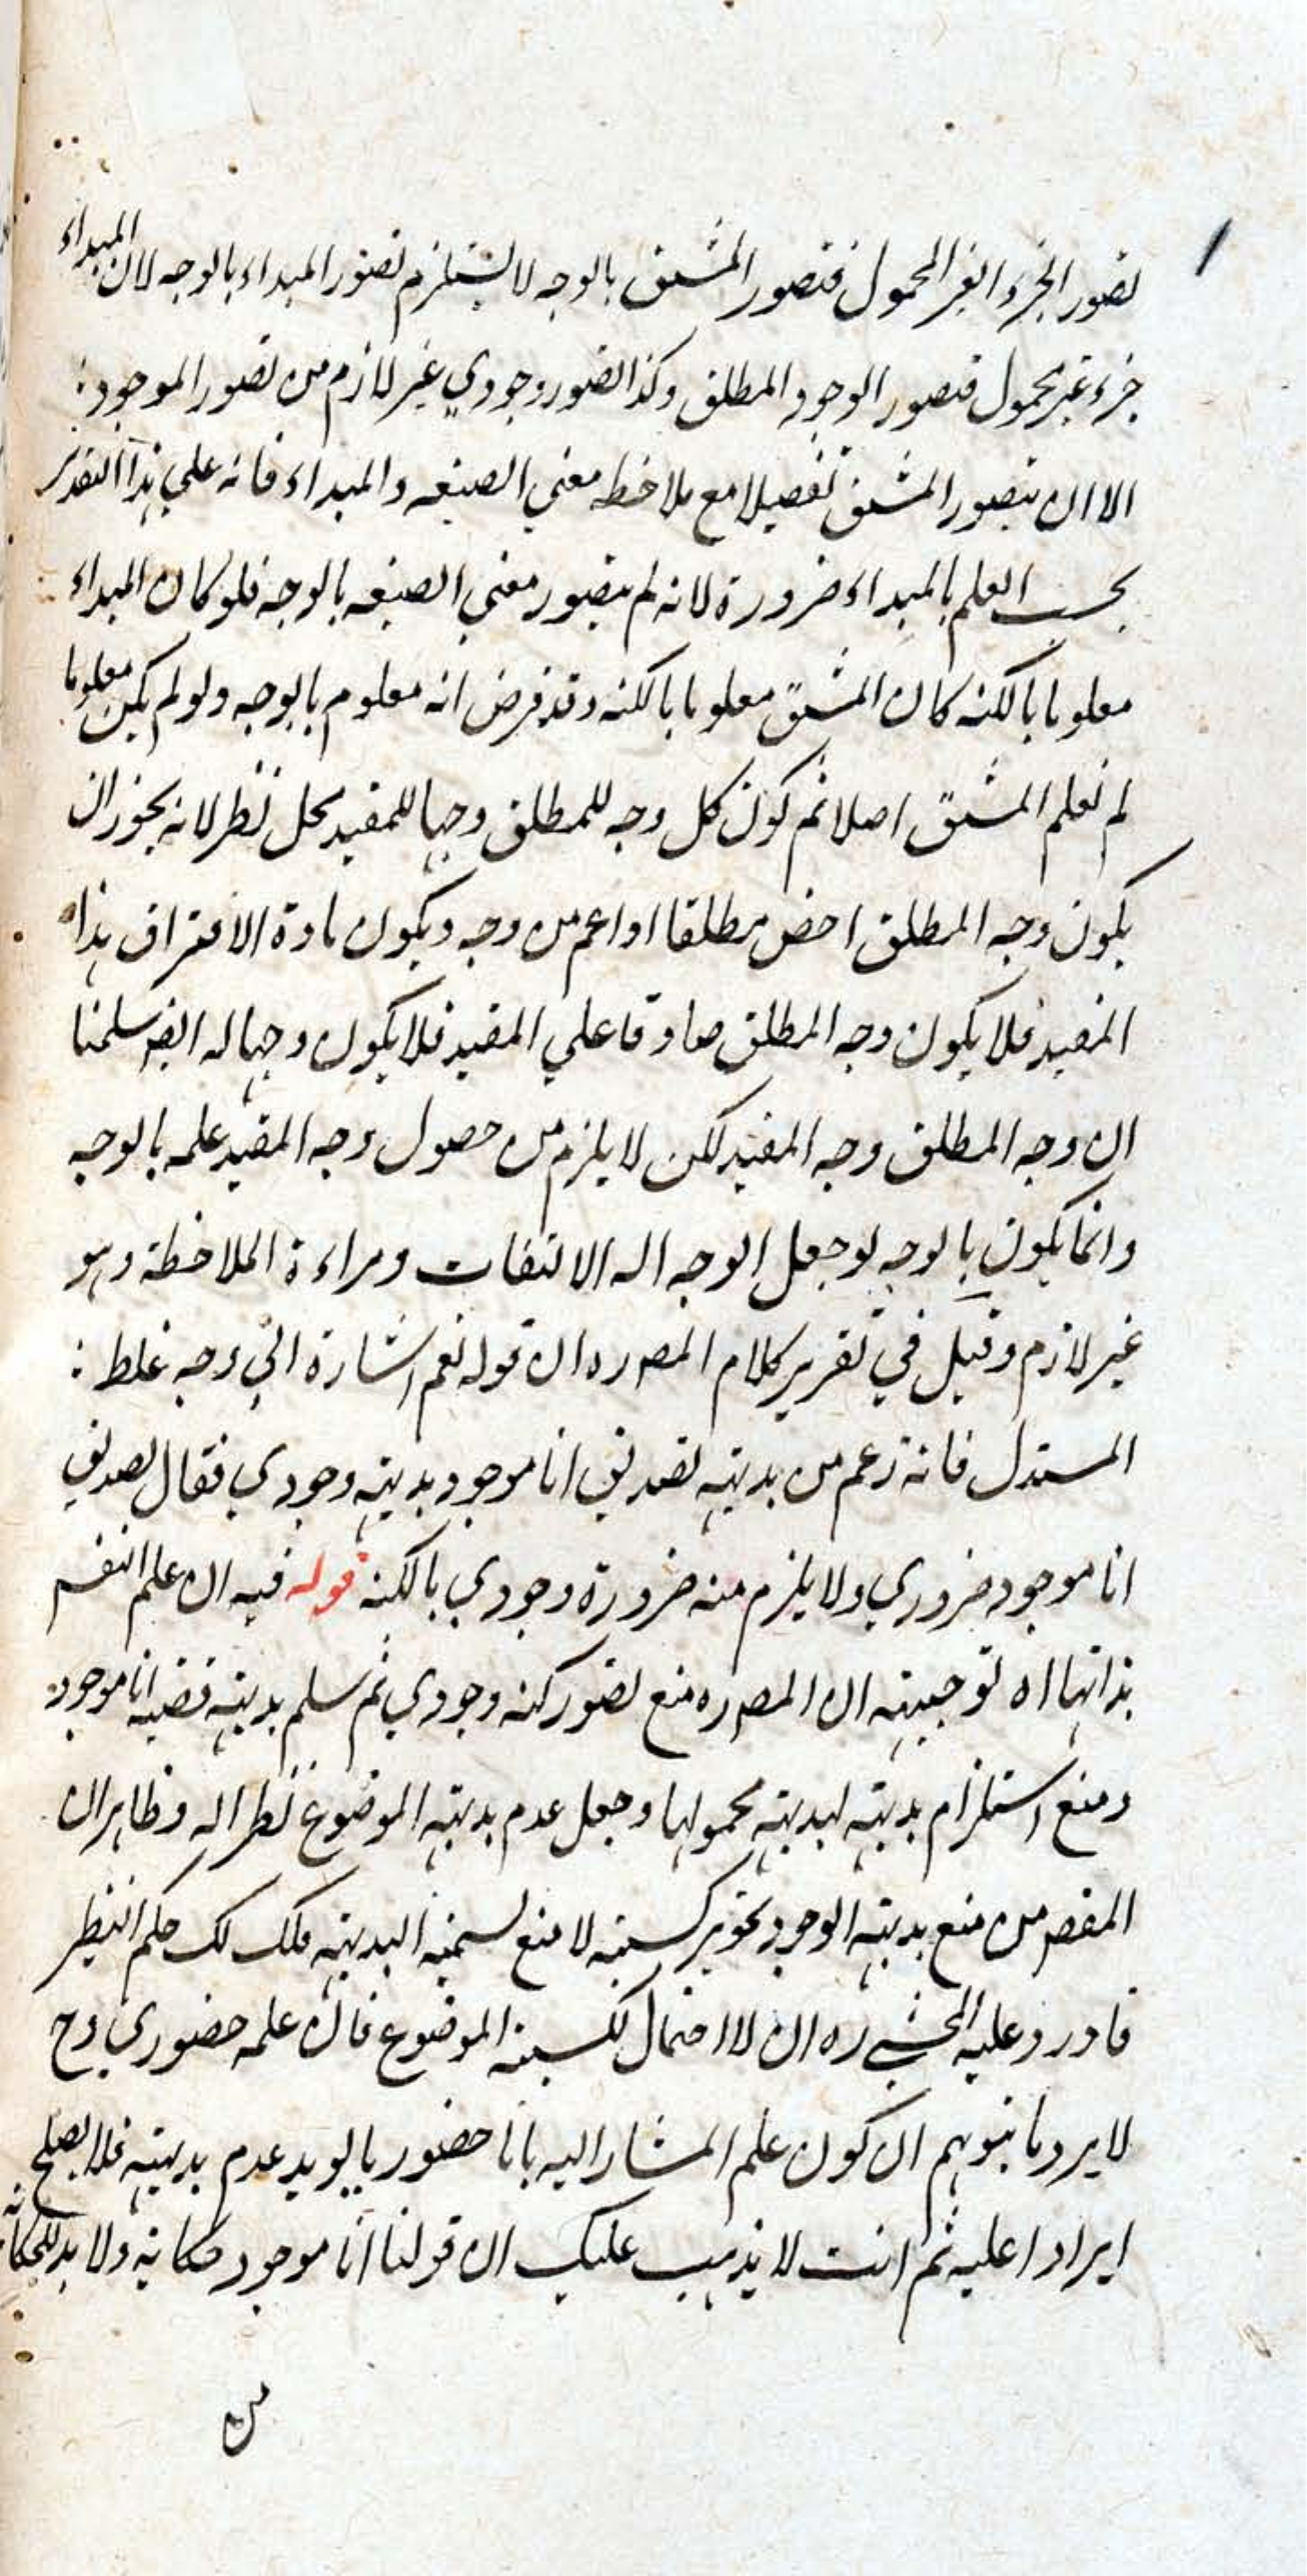 تصور الجزء الغير المحمول فتصور المشتق بالوجه لا يستلزم تصور المبداء بالوجه لان المبداء
جزء غير محمول فتصور الوجود المطلق وكذا تصور وجودي غير لازم من تصور الموجود
الا ان يتصور المشتق تفصيلا مع ملاحظة معني الصيغه والمبداء فانه علي هذا التقدير
يجب العلم بالمبداء ضرورة لانه لم يتصور معني الصيغه بالوجه فلو كان المبداء
معلوما بالكنه كان المشتق معلوما بالكنه وقد فرض انه معلوم بالوجه ولو لم يكن معلوما
لم يعلم المشتق اصلا ثم كون كل وجه للمطلق وجها للمقيد محل نظر لانه يجوز ان
يكون وجه المطلق اخص مطلقا او اعم من وجه ويكون مادة الافتراق هذا
المقيد فلا يكون وجه المطلق صادقا علي المقيد فلا يكون وجها له ايضا سلمنا
ان وجه المطلق وجه المقيد لكن لا يلزم من حصول وجه المقيد علمه بالوجه
وانما يكون بالوجه لو جعل الوجه اله الالتفات ومراءة الملاحظة وهو
غير لازم وقيل في تقرير كلام المصره ان قوله نعم اشارة الي وجه غلط
المستدل فانه زعم من بديهته تصديق انا موجود بديهته وجودي فقال تصديق
انا موجود ضروري ولا يلزم منه ضرورة وجودي بالكنه قوله فيه ان علم النفس
بذاتها اه توجيهته ان المصره منع تصور كنه وجودي ثم سلم بديهته قضيه انا موجود
ومنع استلزام بديهته لبديهته محمولها وجعل عدم بديهته الموضوع نظرا له وظاهر ان
المقص من منع بديهته الوجود تجويز كسبيته لا منع تسميته البديهته فكك لك حكم النظير
فاورد عليه المحشي ره ان لا احتمال لكسبيته الموضوع فان علمه حضوري وح
لا يرد ما يتوهم ان كون علم المشار اليه بانا حضوريا يويد عدم بديهته فلا يصلح
ايرادا عليه ثم انت لا يذهب عليك ان قولنا انا موجود حكايه ولا بد للحكايه
من